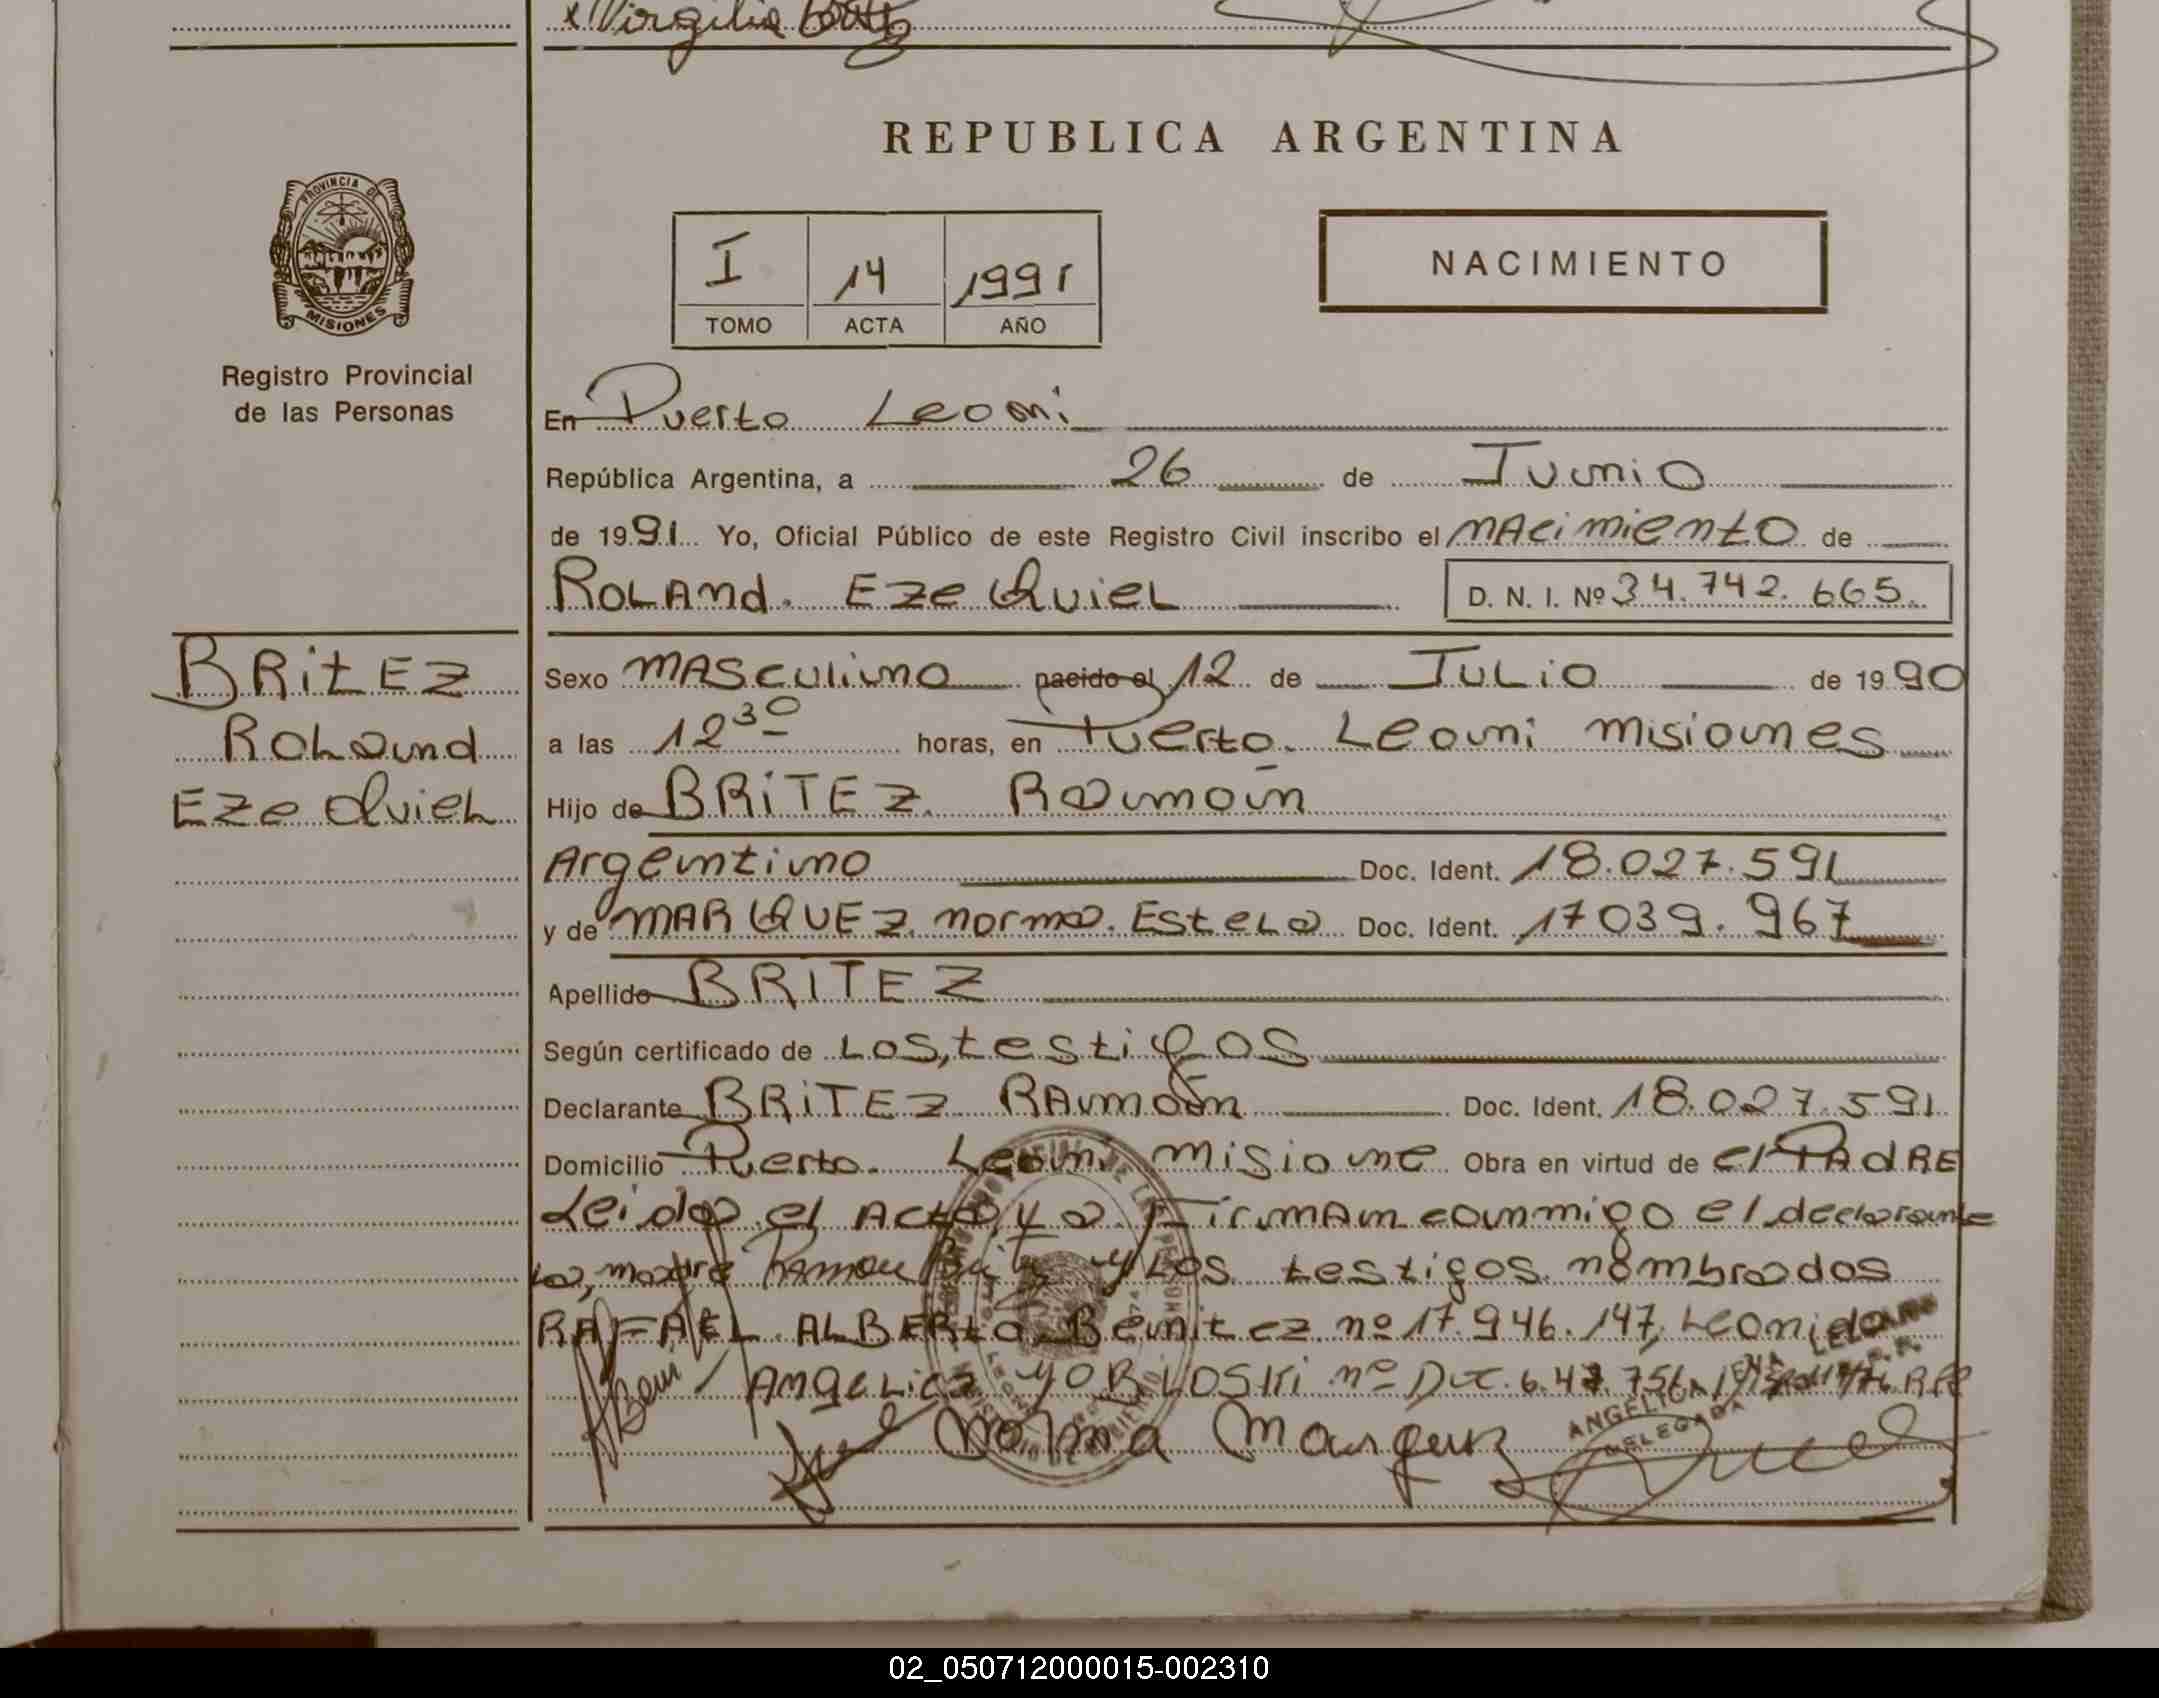 x Virgilio
REPUBLICA ARGENTINA
PROVINCIA DE
MISIONES
Registro Provincial
de las Personas
I 14 1991
TOMO ACTA AÑO
NACIMIENTO
En Puerto Leoni
República Argentina, a 26 de Junio
de 1991 Yo, Oficial Público de este Registro Civil inscribo el nacimiento de
ROLAnd. EzeQuieL D. N. I. Nº 34.742.665.
BRitEz
RoLand
EzeQuieL
Sexo MASculino nacido el 12 de JULio de 1990
a las 12 30 horas, en Puerto. Leoni misiones
Hijo de BRiTEz. Ramón
Argentino Doc. Ident. 18.027.591
y de MARQUEz. norma. EsteLa Doc. Ident. 17039.967
Apellido BRITEZ
Según certificado de Los, testigos
Declarante BRiTEz RAmón Doc. Ident. 18.027.591
Domicilio Puerto. Leoni misione Obra en virtud de el PAdRE
Leida el Acta, Firman conmigo el declarante
la, madre Ramon y Los testigos nombrados
RAFAEL. ALBERto. Benitez nº 17.946.147,
Angelica nº
ANGELICA
DELEGADA
Norma Marquez
02_050712000015-002310